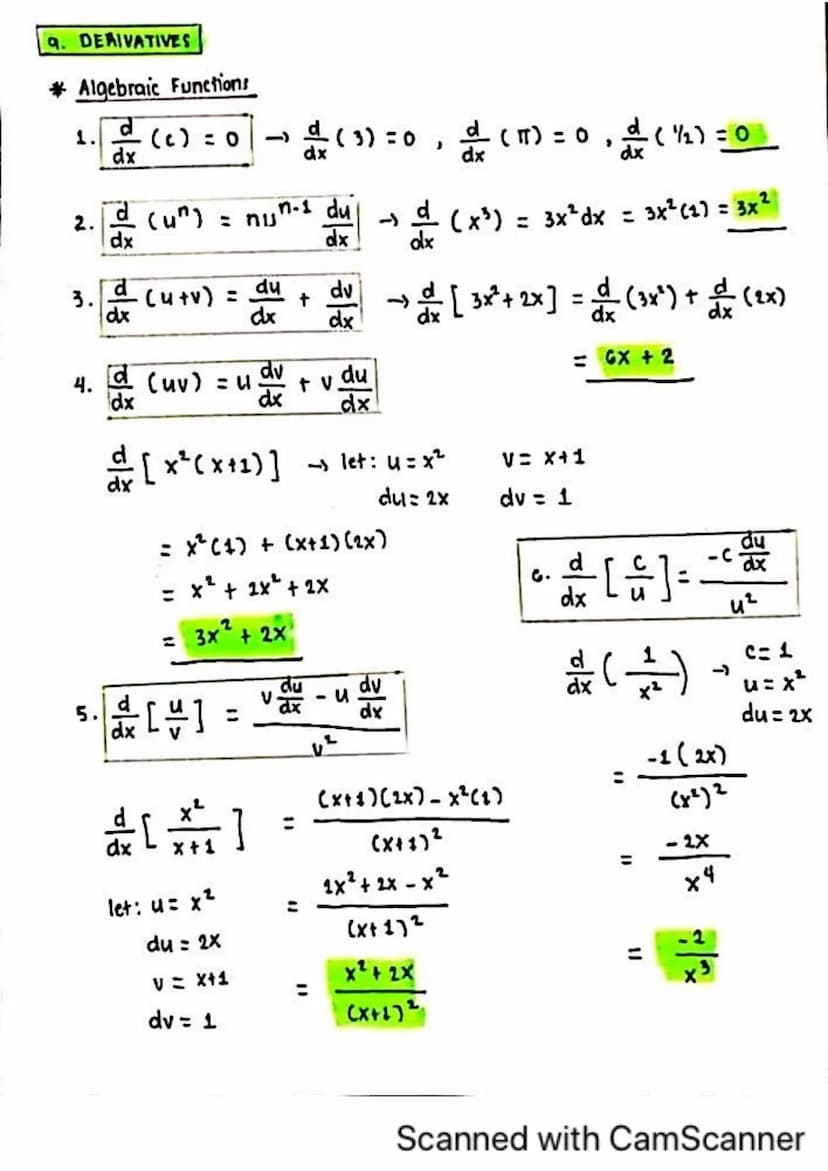 9. DERIVATIVES
* Algebraic Functions
1. d/dx (c) = 0 → d/dx (3) = 0 , d/dx (π) = 0 , d/dx (1/2) = 0
2. d/dx (uⁿ) = nuⁿ⁻¹ du/dx → d/dx (x³) = 3x² dx = 3x²(1) = 3x²
3. d/dx (u+v) = du/dx + dv/dx → d/dx [3x² + 2x] = d/dx (3x²) + d/dx (2x)
= 6x + 2
4. d/dx (uv) = u dv/dx + v du/dx
d/dx [x²(x+1)] → let: u = x² v = x+1
du = 2x dv = 1
= x²(1) + (x+1)(2x)
= x² + 2x² + 2x
= 3x² + 2x
5. d/dx [u/v] = (v du/dx - u dv/dx) / v²
d/dx [x²/(x+1)] = ((x+1)(2x) - x²(1)) / (x+1)²
let: u = x²
du = 2x
v = x+1
dv = 1
= (2x² + 2x - x²) / (x+1)²
= (x² + 2x) / (x+1)²
6. d/dx [c/u] = (-c du/dx) / u²
d/dx (1/x²) → c = 1
u = x²
du = 2x
= -1(2x) / (x²)²
= -2x / x⁴
= -2 / x³
Scanned with CamScanner